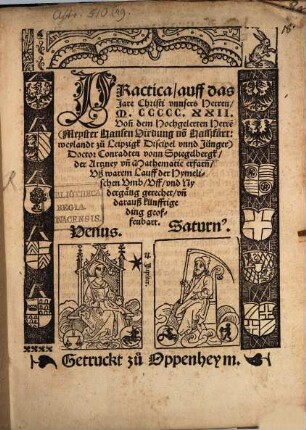 Astr. P. 510 (19.
18.
PRactica/auff das
Jare Christi vnsers Herren/
M. CCCCC. XXII.
Võ dem Hochgelerten Herrē
Meyster Hansen Virdung vō Hassfurt:
weylandt zů Leipzigk Discipel vnnd Jünger
Doctor Conradten vonn Spiegelbergk/
der Artzney vñ Mathematic erfarn/
Vß warem Lauff der Hymeli-
schen Vmb/Vff/vnd Ny
dergāg gerechet/vñ
darauß künfftige
ding geof-
fenbart.
BIBLIOTHECA
REGIA
MONACENSIS.
Venus.
Saturn⁹.
Jupiter.
Getruckt zů Oppenheym.